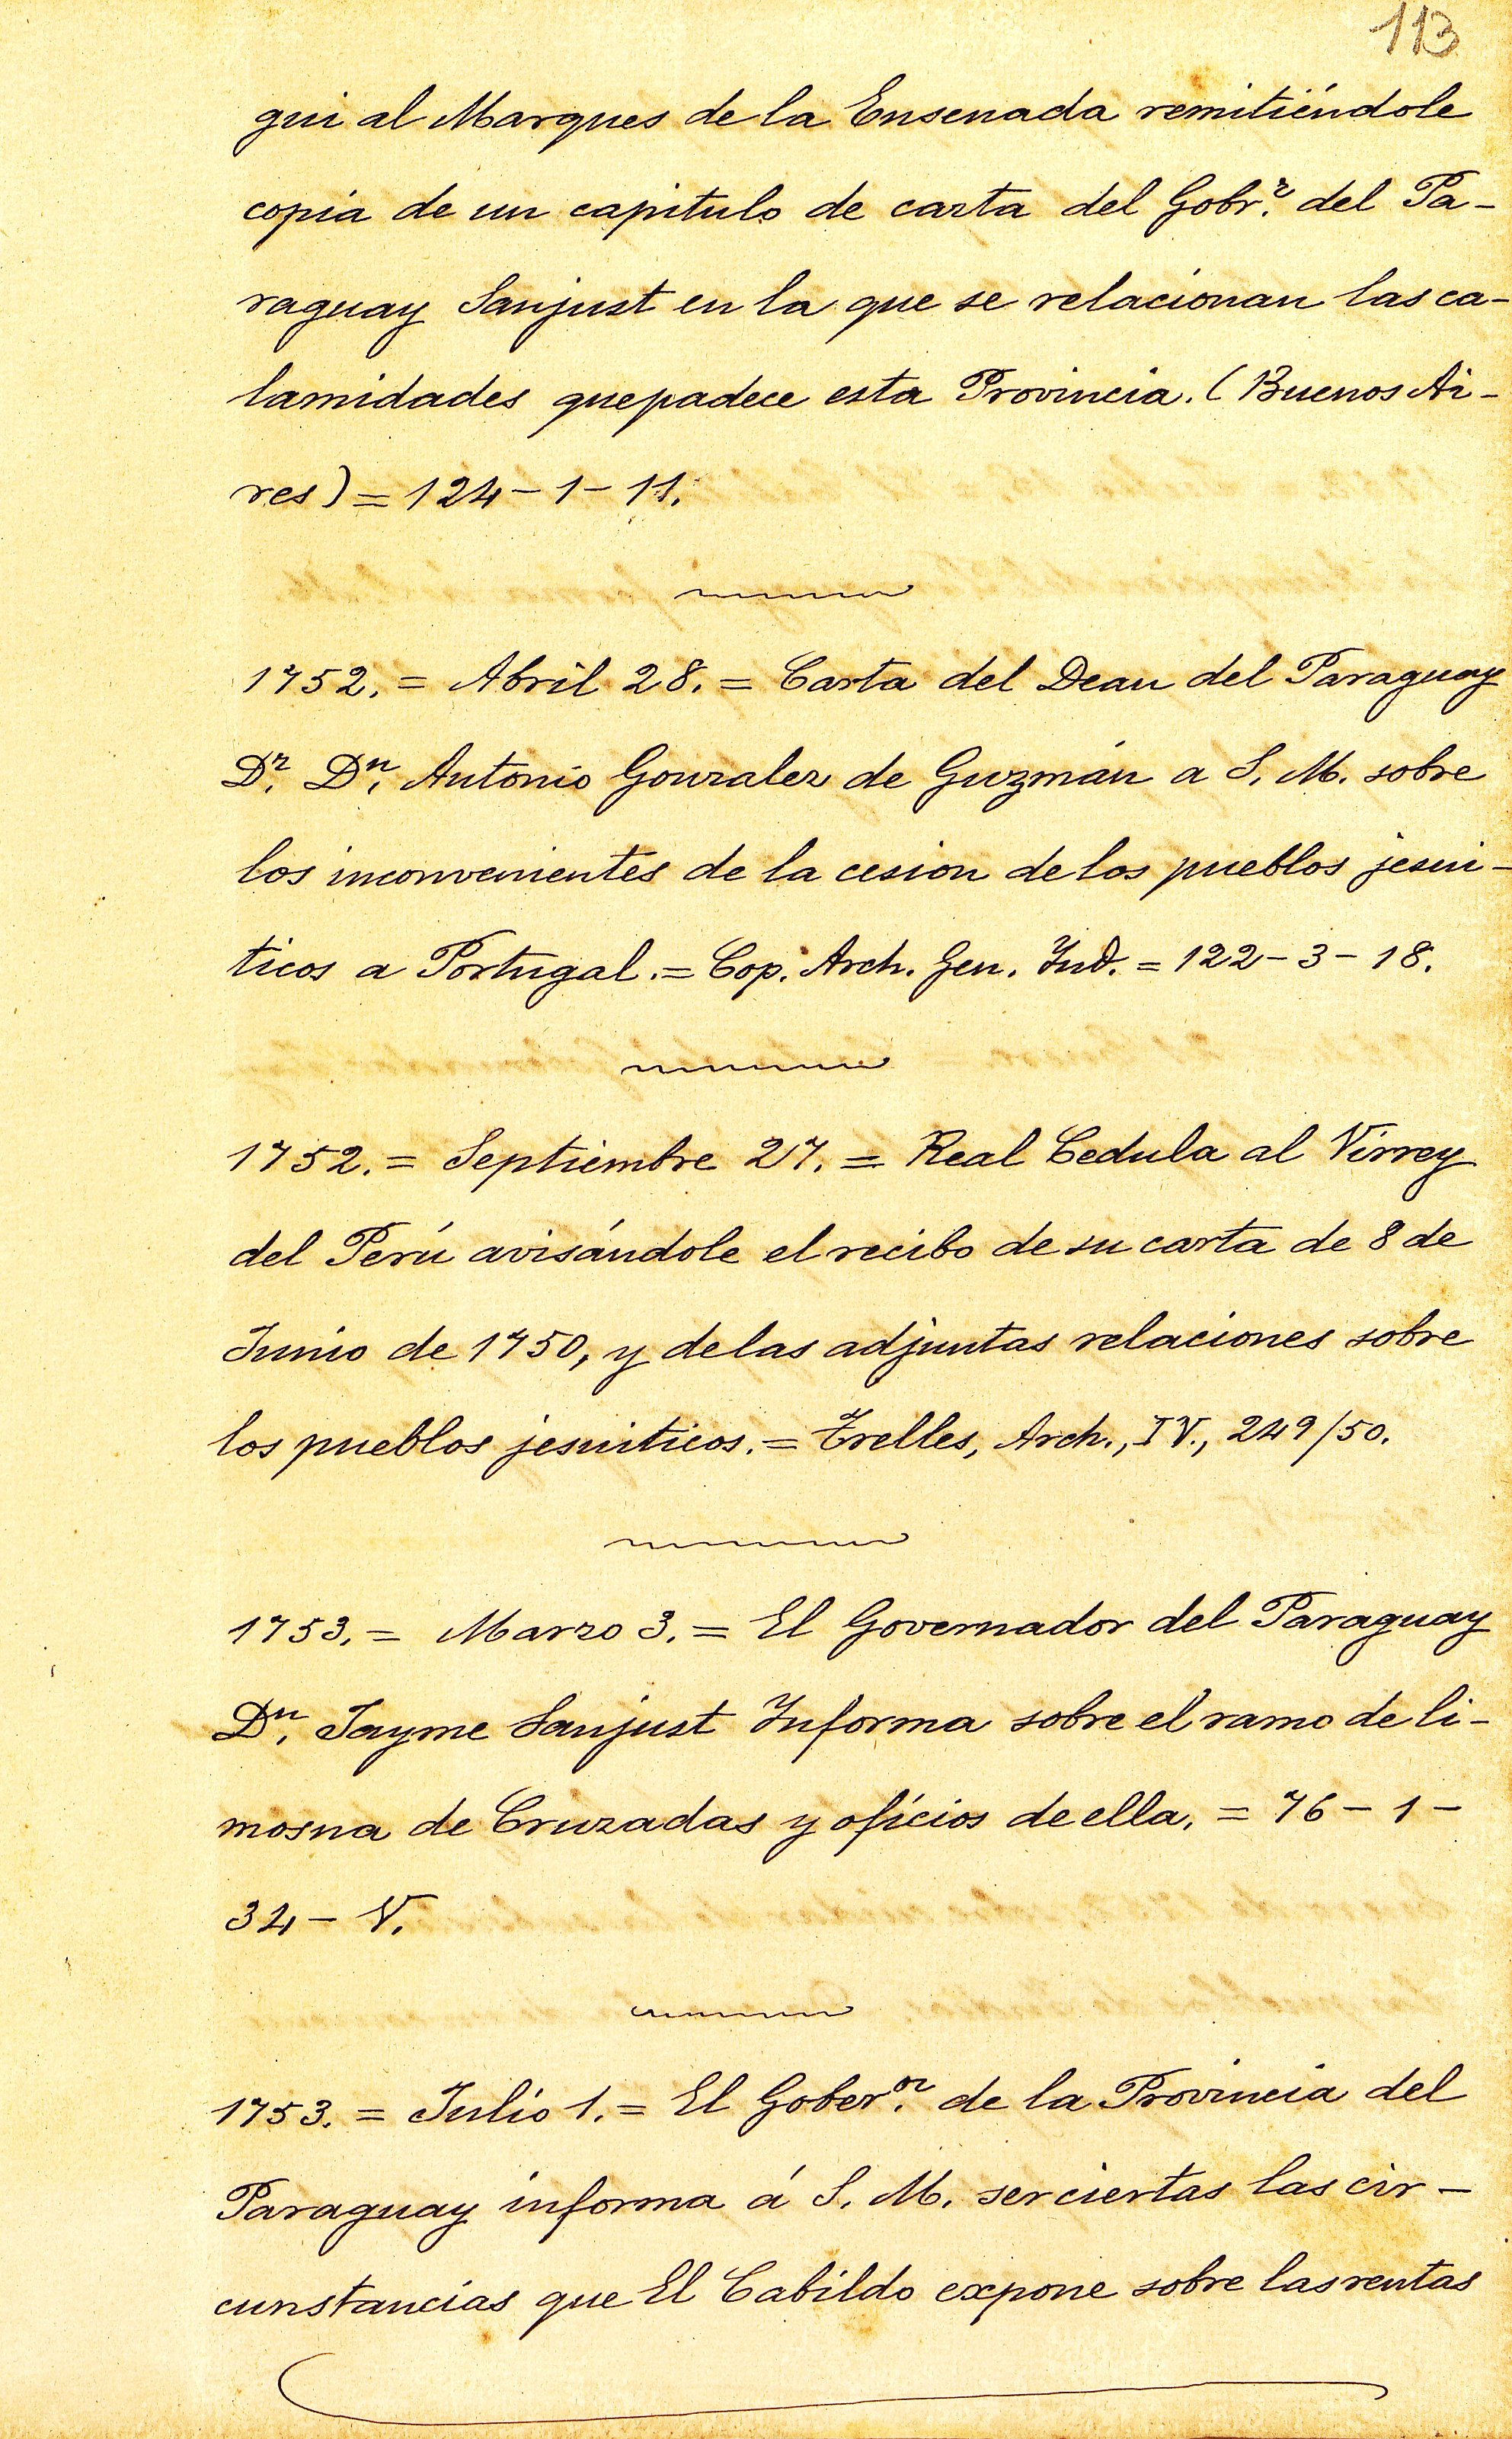 113
gui al Marques de la Ensenada remitiéndole
copia de un capitulo de carta del Gobr.r del Pa-
raguay Sanjust en la que se relacionan las ca-
lamidades que padece esta Provincia. (Buenos Ai-
res) = 124 - 1 - 11.
1752. = Abril 28. = Carta del Dean del Paraguay
D.r D.n Antonio Gonzalez de Guzmán a S. M. sobre
los inconvenientes de la cesion de los pueblos jesui-
ticos a Portugal. = Cop. Arch. Gen. Ind. = 122 - 3 - 18.
1752. = Septiembre 27. = Real Cedula al Virrey
del Perú avisándole el recibo de su carta de 8 de
Junio de 1750, y de las adjuntas relaciones sobre
los pueblos jesuiticos. = Trelles, Arch., IV., 249/50.
1753. = Marzo 3. = El Governador del Paraguay
D.n Jayme Sanjust Informa sobre el ramo de li-
mosna de Cruzadas y oficios de ella. = 76 - 1 -
34 - V.
1753. = Julio 1. = El Gober.or de la Provincia del
Paraguay informa á S. M. ser ciertas las cir-
cunstancias que El Cabildo expone sobre las rentas